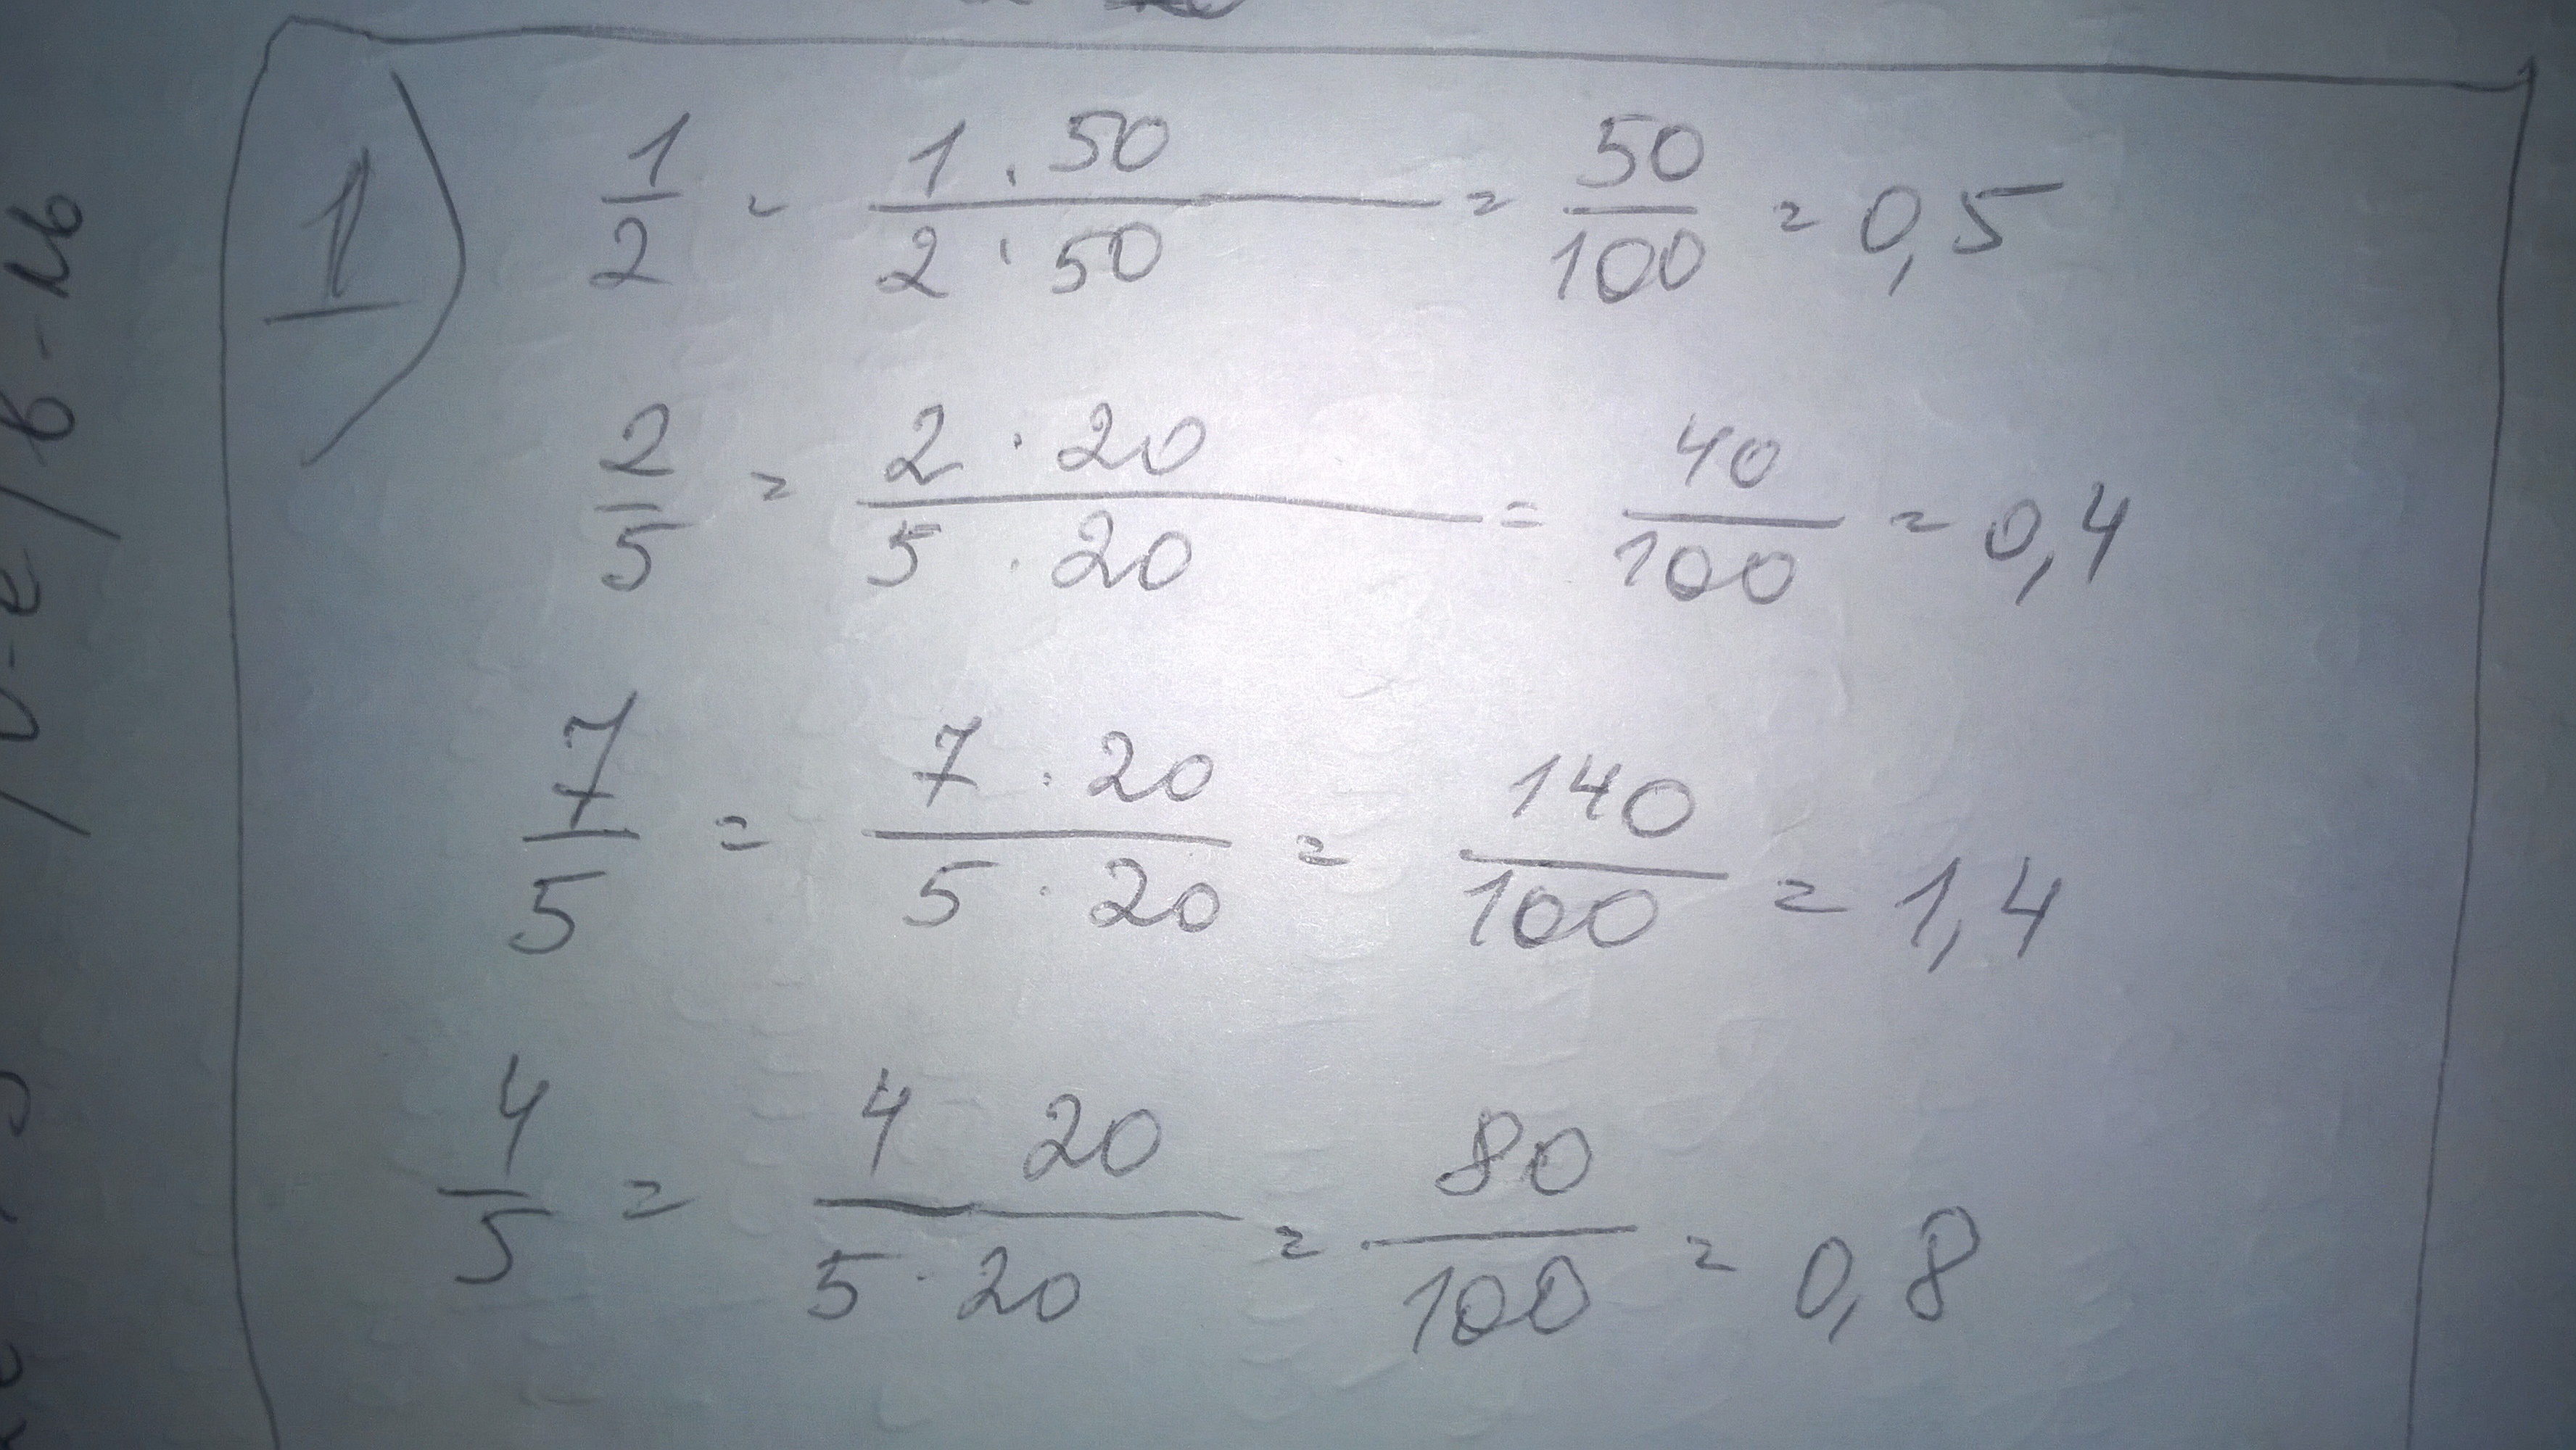 1) 1/2 = 1 · 50 / 2 · 50 = 50/100 = 0,5
2/5 = 2 · 20 / 5 · 20 = 40/100 = 0,4
7/5 = 7 · 20 / 5 · 20 = 140/100 = 1,4
4/5 = 4 20 / 5 · 20 = 80/100 = 0,8